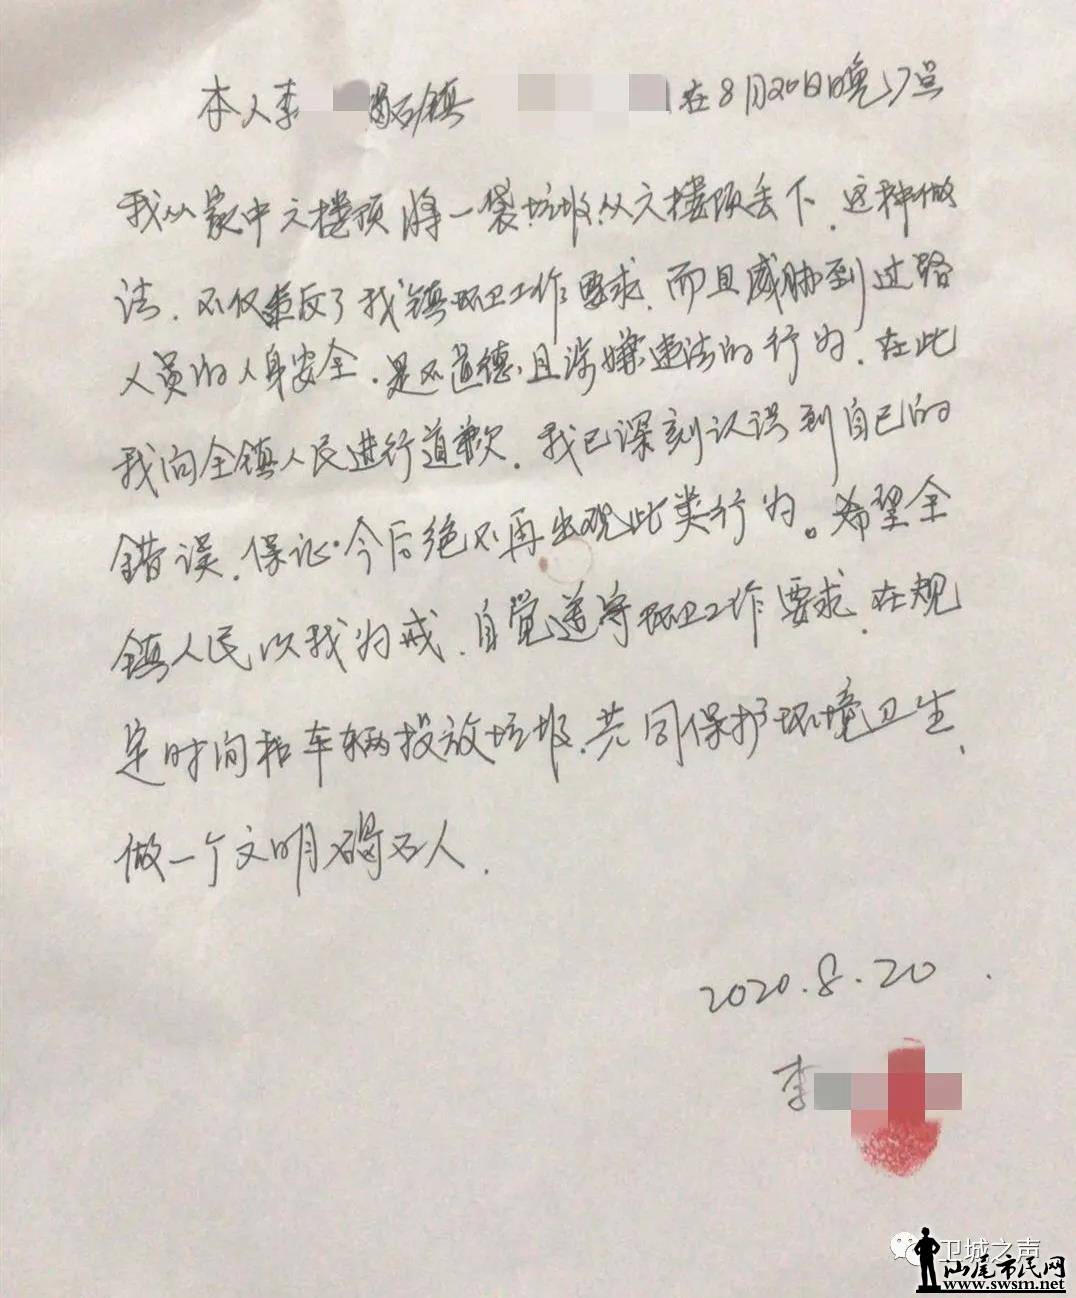 本人李 碣石镇 在8月20日晚17点
我从家中六楼顶将一袋垃圾从六楼顶丢下.这种做
法.不仅违反了我镇环卫工作要求.而且威胁到过路
人员的人身安全.是不道德且涉嫌违法的行为.在此
我向全镇人民进行道歉.我已深刻认识到自己的
错误.保证今后绝不再出现此类行为。希望全
镇人民以我为戒.自觉遵守环卫工作要求.在规
定时间和车辆投放垃圾.共同保护环境卫生.
做一个文明碣石人.
2020.8.20
李
卫城之声
汕尾市民网
www.swsm.net